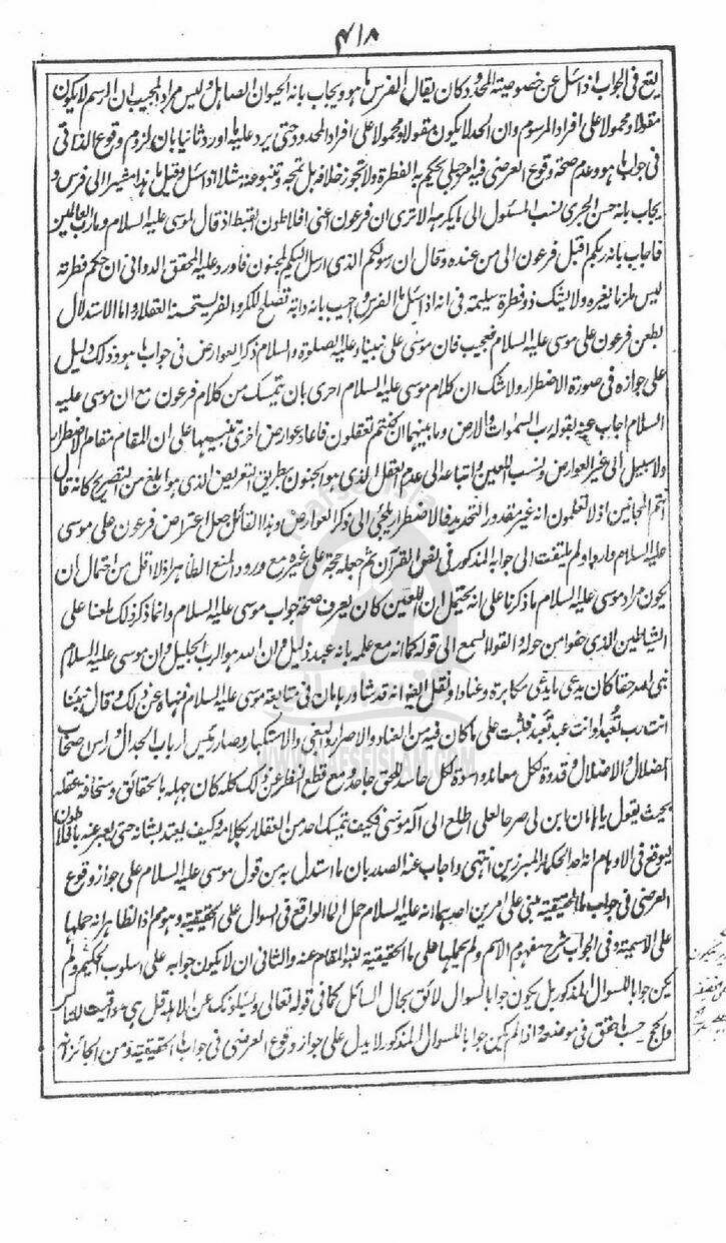 ٤١٨
يقع فى الجواب اذا سئل عن خصوصية المحدود كان يقال الفرس ما هو ويجاب بانه الحيوان الصاهل وليس مراد المجيب ان الرسم لا يكون
مقولا ومحمولا على افراد المرسوم وان الحد لا يكون مقولا ومحمولا على افراد المحدود حتى يرد عليه ما اورد ثانيا بان لزوم وقوع الذاتى
فى جواب ما هو وعدم صحة وقوع العرضى فيه امر جبلى يحكم به الفطرة ولا تجوز خلافه بل تمجه وتنبو عنه مثلا اذا سئل وقيل ما هذا مشيرا الى فرس و
يجاب بانه حسن الجرى لنسب المسئول الى ما يكرهه الا ترى ان فرعون عنى افلاطون القبط اذ قال لموسى عليه السلام وما رب العالمين
فاجاب بانه ربكم اقبل فرعون الى من عنده وقال ان رسولكم الذى ارسل اليكم لمجنون فاورد عليه المحقق الدوانى ان حكم فطرته
ليس ملزما لغيره ولا يشك ذو فطرة سليمة فى انه اذا سئل ما الفرس واجيب بانه دابة تصلح للكر والفر يستحسنه العقلاء واما الاستدلال
بطعن فرعون على موسى عليه السلام فعجيب فان موسى على نبينا وعليه الصلوة والسلام ذكر العوارض فى جواب ما هو وذلك دليل
على جوازه فى صورة الاضطرار ولا شك ان كلام موسى عليه السلام احرى بان يتمسك من كلام فرعون مع ان موسى عليه
السلام اجاب عنه بقوله رب السموات والارض وما بينهما ان كنتم تعقلون فاعاد عوارض اخرى تنبيها على ان المقام مقام الاضطرار
ولا سبيل الى غير العوارض ونسب اللعين واتباعه الى عدم العقل الذى هو الجنون بطريق التعريض الذى هو ابلغ من التصريح كانه قال
انتم المجانين اذ لا تعلمون انه غير مقدور التحديد فالاضطرار يلجئ الى ذكر العوارض وهذا القائل جعل اعتراض فرعون على موسى
عليه السلام واردا ولم يلتفت الى جوابه المذكور فى نص القرآن ثم جعله حجة على غيره مع ورود المنع الظاهر اذ لا اقل من احتمال ان
يكون مراد موسى عليه السلام ما ذكرنا على انه يحتمل ان اللعين كان يعرف صحة جواب موسى عليه السلام وانما ذكر ذلك طعنا على
الشياطين الذى حفوا من حوله والقوا السمع الى قوله كما انه مع علمه بانه عبد ذليل وان الله هو الرب الجليل وان موسى عليه السلام
نبى الله حقا كان يدعى ما يدعى مكابرة وعنادا ونقل ايضا انه قد شاور هامان فى متابعة موسى عليه السلام فنهاه عن ذلك وقال بينما
انت رب تعبد وانت عبد تعبد فلبث على ما كان فيه من العناد والاصرار والبغى والاستكبار وصار رئيس ارباب الجدال وراس اصحاب
الضلال والاضلال وقدوة لكل معاند واسوة لكل حاسد للحق جاحد ومع قطع النظر عن ذلك كله كان جهله بالحقائق وسخافة عقله
بحيث يقول يا هامان ابن لى صرحا لعلى اطلع الى اله موسى فكيف يتمسك احد من العقلاء بكلامه وكيف يعتد بشانه حتى يعبر عنه بافلاطون
ليوقع فى الاوهام انه احد الحكماء المبرزين انتهى واجاب عنه الصدر بان ما استدل به من قول موسى عليه السلام على جواز وقوع
العرضى فى جواب ما الحقيقية مبنى على امرين احدهما انه عليه السلام حمل ما الواقع فى السوال على الحقيقية وهو مم اذ الظاهر انه حملها
على الاسمية وفى الجواب شرح مفهوم الاسم ولم يحملها على ما الحقيقية لنبو المقام عنه والثانى ان لا يكون جوابه على اسلوب الحكيم ولم
يكن جوابا للسوال المذكور بل يكون جوابا لسوال لائق بحال السائل كما فى قوله تعالى ويسئلونك عن الاهلة قل هى مواقيت للناس
والحج حسب ما حقق فى موضعه واذا لم يكن جوابا للسوال المذكور لا يدل على جواز وقوع العرضى فى جواب ما الحقيقية ومن الجائز انه
WWW.NAFSEISLAM.COM